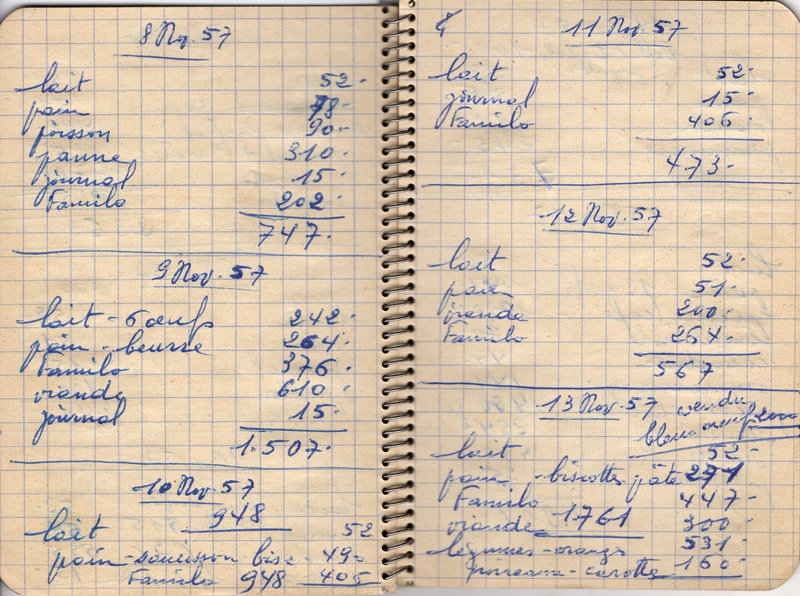 8 Nov. 57
lait 52.
pain 78.
poisson 90.
panne 310.
journal 15.
Familo 202.
747.
9 Nov. 57
lait - 6 œufs 242.
pain - beurre 264.
Familo 376.
viande 610.
journal 15.
1.507.
10 Nov. 57
948
lait 52
pain - saucisson bisc. 490
Familo 948 406
11 Nov. 57
lait 52.
journal 15.
Familo 406.
473.
12 Nov. 57
lait 52.
pain 51.
viande 200.
Familo 264.
567
13 Nov. 57 vendu
bleu neuf 2000
lait 52.
pain - biscottes pâte 271
Familo 447.
viande 1761 300.
légumes - orange 531.
poireaux - carottes 160.